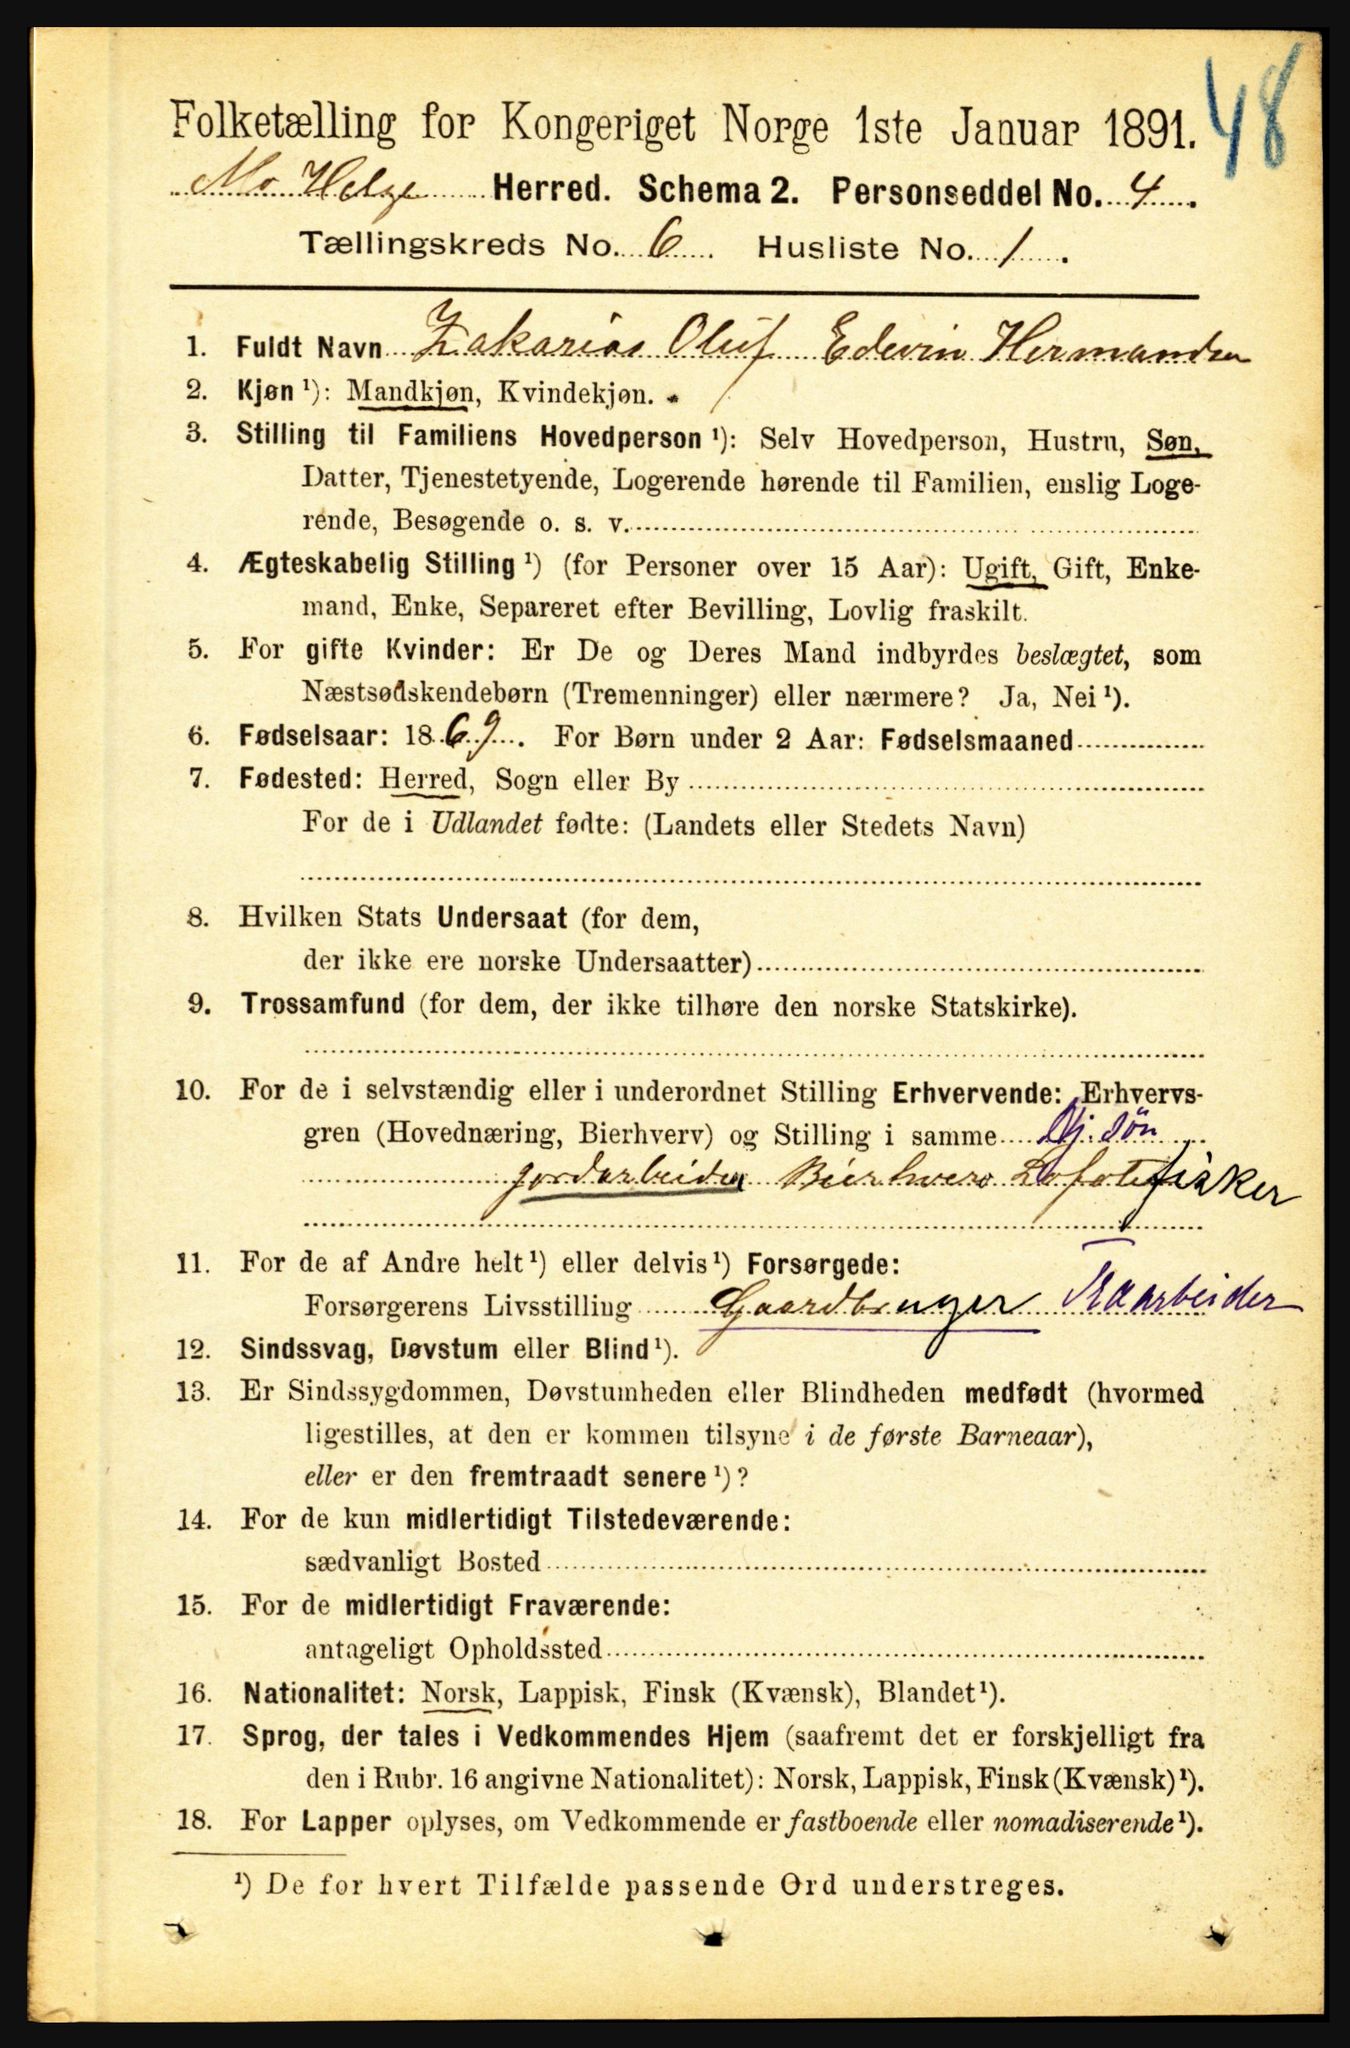 48
Folketælling for Kongeriget Norge 1ste Januar 1891.
Mo Helge Herred. Schema 2. Personseddel No. 4.
Tællingskreds No. 6. Husliste No. 1.
1. Fuldt Navn Zakarias Oluf Edevin Hermandsen
2. Kjøn ¹): Mandkjøn, Kvindekjøn.
3. Stilling til Familiens Hovedperson ¹): Selv Hovedperson, Hustru, Søn,
Datter, Tjenestetyende, Logerende hørende til Familien, enslig Loge-
rende, Besøgende o. s. v.
4. Ægteskabelig Stilling ¹) (for Personer over 15 Aar): Ugift, Gift, Enke-
mand, Enke, Separeret efter Bevilling, Lovlig fraskilt.
5. For gifte Kvinder: Er De og Deres Mand indbyrdes beslægtet, som
Næstsødskendebørn (Tremenninger) eller nærmere? Ja, Nei ¹).
6. Fødselsaar: 1869. For Børn under 2 Aar: Fødselsmaaned
7. Fødested: Herred, Sogn eller By
For de i Udlandet fødte: (Landets eller Stedets Navn)
8. Hvilken Stats Undersaat (for dem,
der ikke ere norske Undersaatter)
9. Trossamfund (for dem, der ikke tilhøre den norske Statskirke).
10. For de i selvstændig eller i underordnet Stilling Erhvervende: Erhvervs-
gren (Hovednæring, Bierhverv) og Stilling i samme Gj. Søn
jordarbeider Bierhverv Lofotefisker
11. For de af Andre helt ¹) eller delvis ¹) Forsørgede:
Forsørgerens Livsstilling Gaardbruger Træarbeider
12. Sindssvag, Døvstum eller Blind ¹).
13. Er Sindssygdommen, Døvstumheden eller Blindheden medfødt (hvormed
ligestilles, at den er kommen tilsyne i de første Barneaar),
eller er den fremtraadt senere ¹)?
14. For de kun midlertidigt Tilstedeværende:
sædvanligt Bosted
15. For de midlertidigt Fraværende:
antageligt Opholdssted
16. Nationalitet: Norsk, Lappisk, Finsk (Kvænsk), Blandet ¹).
17. Sprog, der tales i Vedkommendes Hjem (saafremt det er forskjelligt fra
den i Rubr. 16 angivne Nationalitet): Norsk, Lappisk, Finsk (Kvænsk) ¹).
18. For Lapper oplyses, om Vedkommende er fastboende eller nomadiserende ¹).
¹) De for hvert Tilfælde passende Ord understreges.